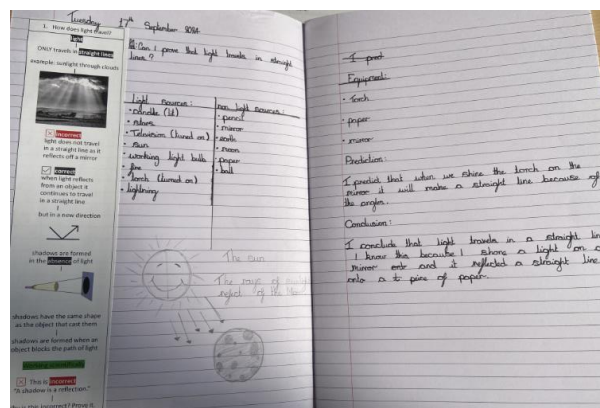 Tuesday 17th September 2024
1. How does light travel?
light
ONLY travels in straight lines
example: sunlight through clouds
incorrect
light does not travel
in a straight line as it
reflects off a mirror
correct
when light reflects
from an object it
continues to travel
in a straight line
but in a new direction
shadows are formed
in the absence of light
shadows have the same shape
as the object that cast them
shadows are formed when an
object blocks the path of light
working scientifically
This is incorrect
"A shadow is a reflection."
is the incorrect? Prove it.
Can I prove that light travels in straight
lines?
light sources:
• candle (lit)
• stars
• Television (turned on)
• sun
• working light bulb
• fire
• torch (turned on)
• lightning
non light sources:
• pencil
• mirror
• earth
• moon
• paper
• ball
The sun
The rays of
of the
I pred
Equipment:
• Torch
• paper
• mirror
Prediction:
I predict that when we shine the torch on the
mirror it will make a straight line because of
the angles.
Conclusion:
I conclude that light travels in a straight line
I know this because I shone a light on a
mirror and it reflected a straight line
onto a piece of paper.